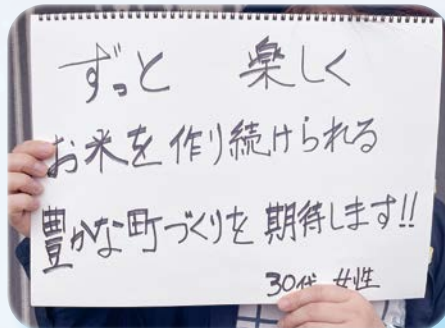 ずっと 楽しく
お米を作り続けられる
豊かな町づくりを期待します!!
30代 女性